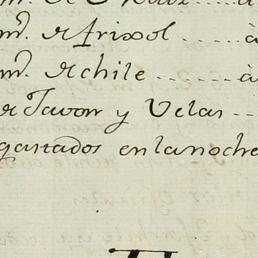 m. de frixol ..... à
m. de chile ..... à
de Javon y Velas ..
gastados en la noche